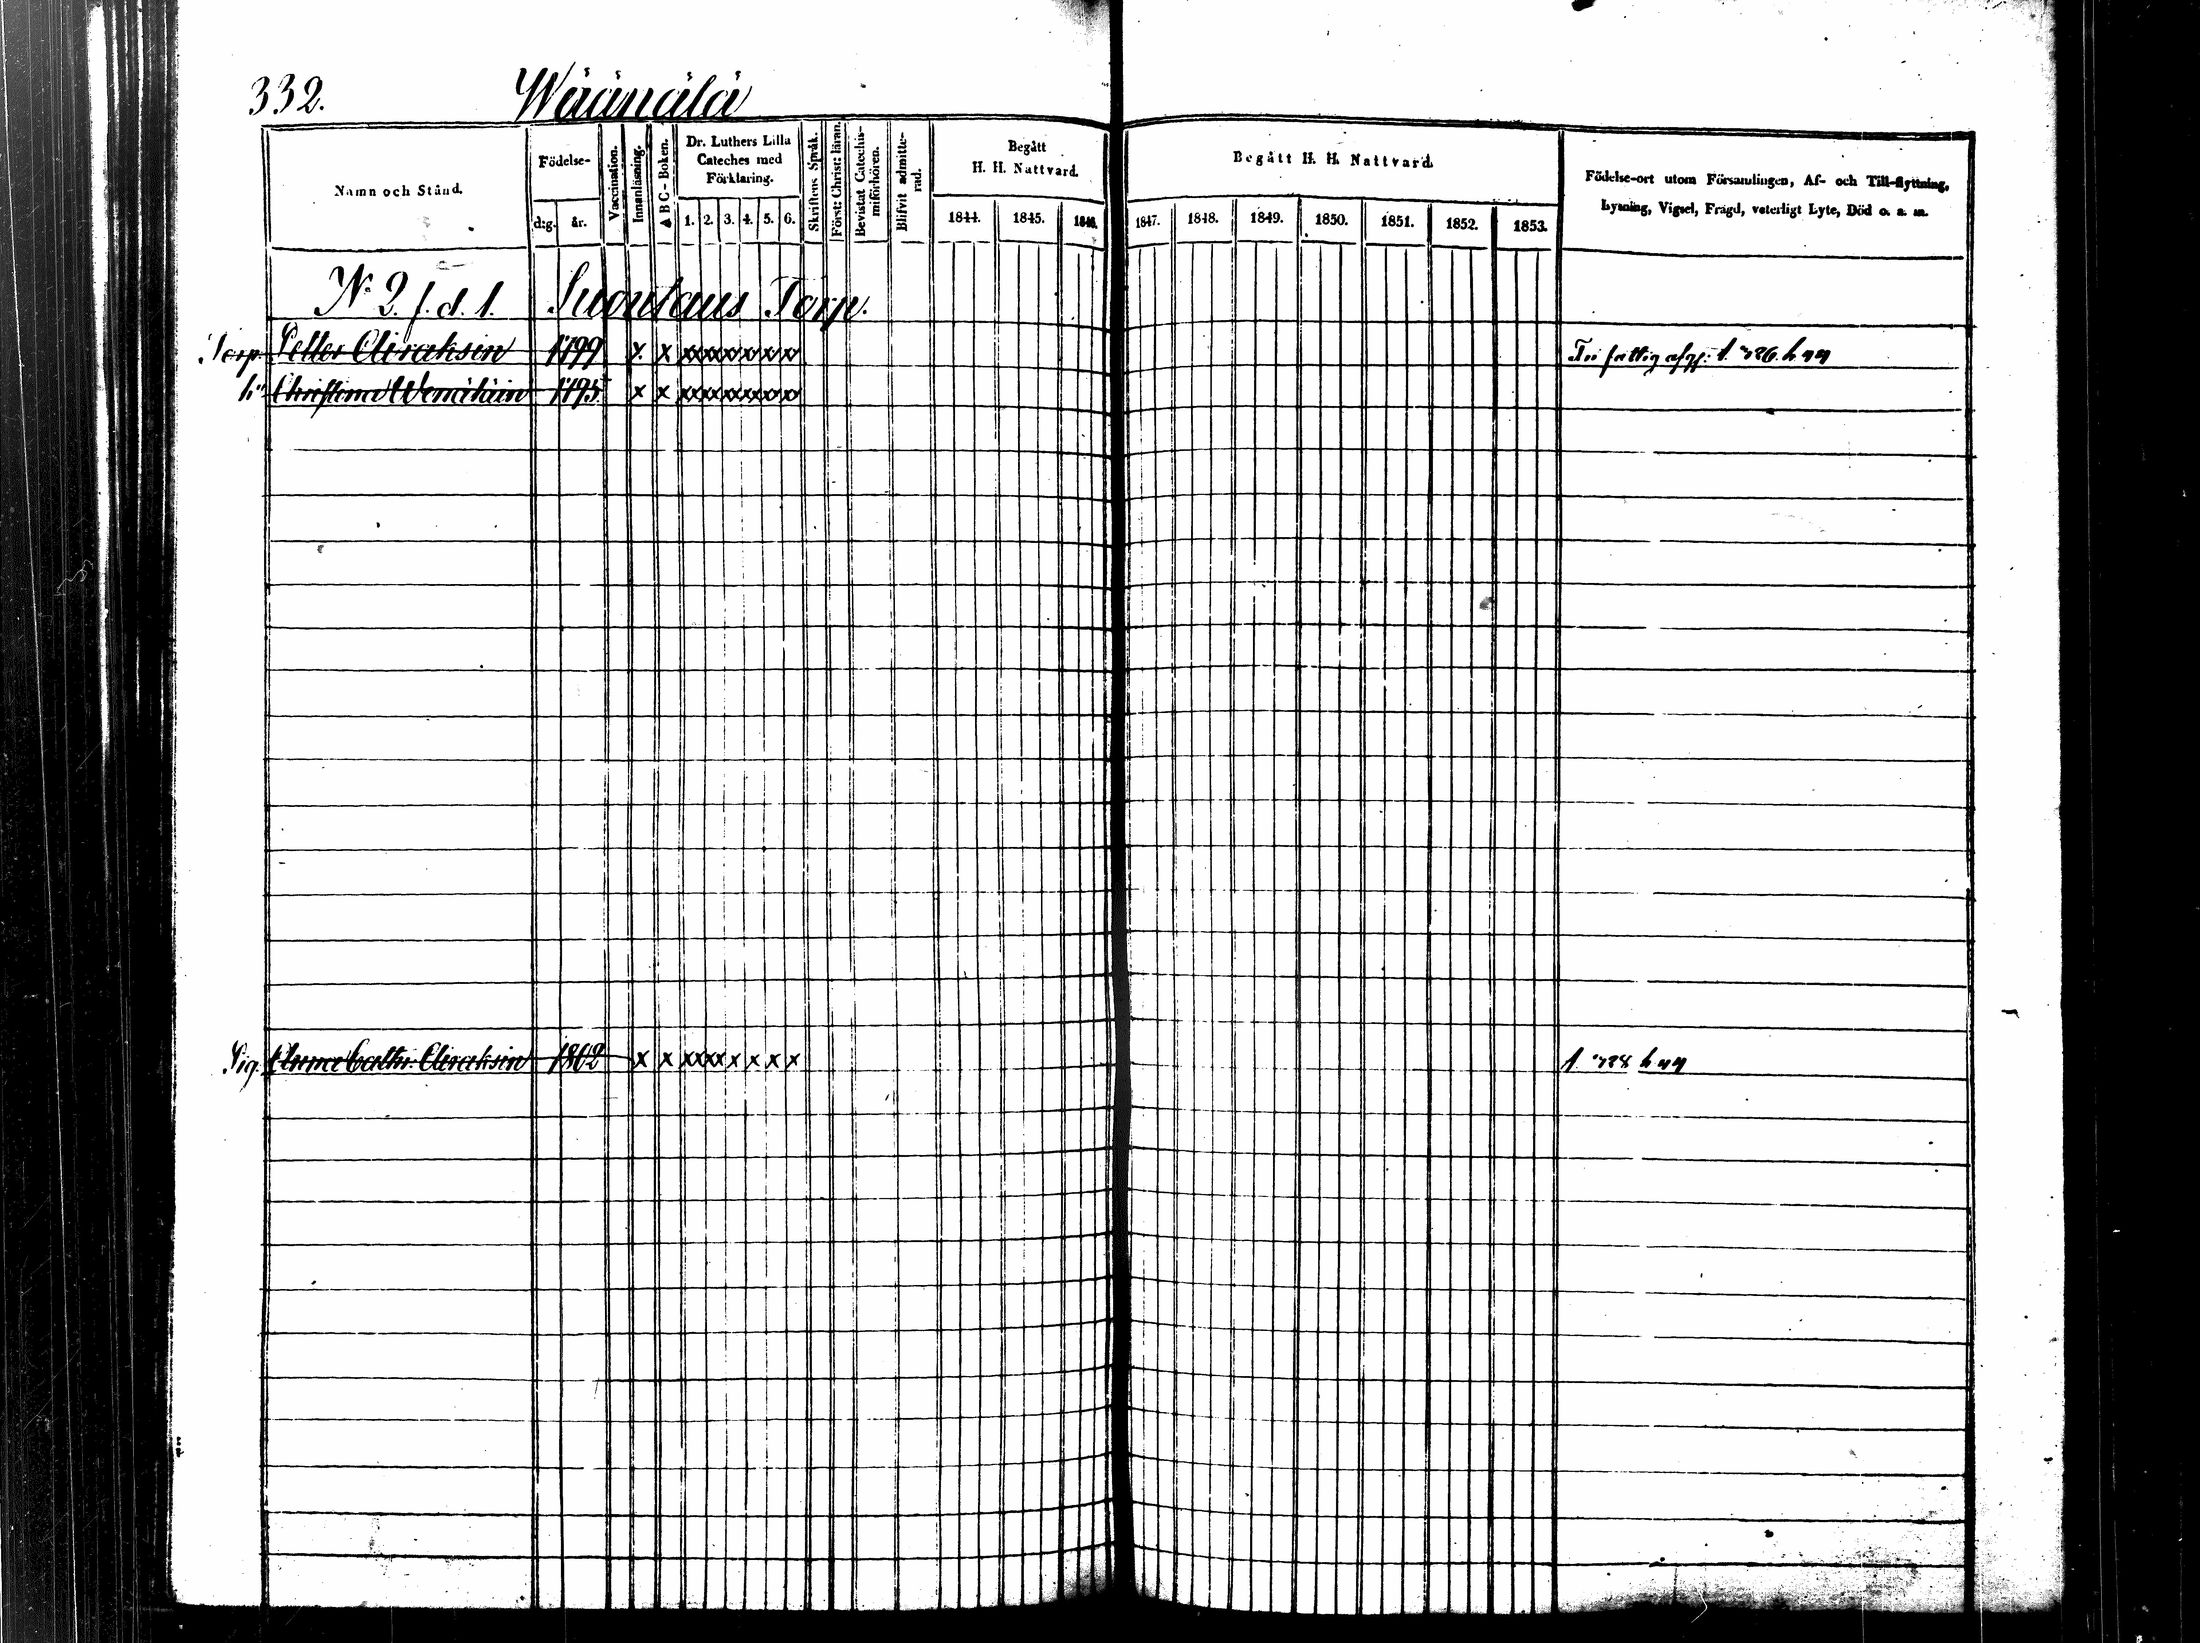 332. Wäänälä
Namn och Stånd.
Födelse-
dag. år.
Vaccination.
Innanläsning.
ABC-Boken.
Dr. Luthers Lilla
Cateches med
Förklaring.
1. 2. 3. 4. 5. 6.
Skriftens Språk.
Först: Christ: läran.
Bevistat Catechis-
miförhören.
Blifvit admitte-
rad.
Begått
H. H. Nattvard.
1844. 1845. 1846.
Begått H. H. Nattvard
1847. 1848. 1849. 1850. 1851. 1852. 1853.
Födelse-ort utom Församlingen, Af- och Till-flyttning,
Lysning, Vigsel, Frägd, veterligt Lyte, Död o. s. m.
N 2 f. d. 1. Torp.
Torp. Petter Airaksin 1799 x x x x x x x x x x
h: Christina Wenäläin 1795 x x x x x x x x x x
Pig. Anna Cathr. Airaksin 1802 x x x x x x x x x x